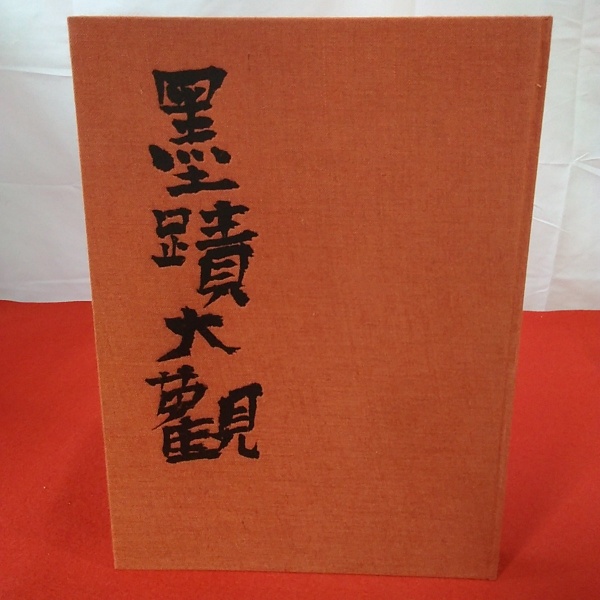 墨蹟大觀